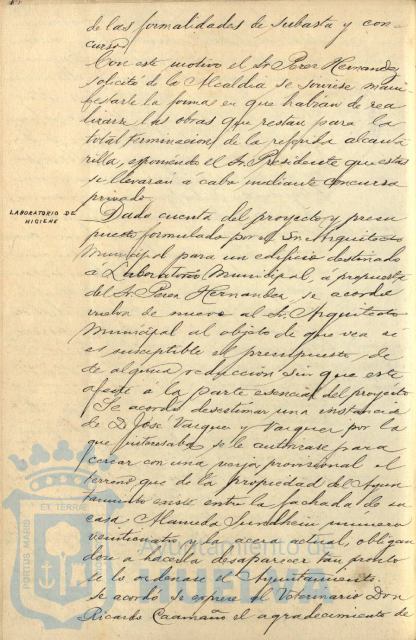 de las formalidades de subasta y con-
curso.
Con este motivo el Sr. Perez Hernandez
solicitó de la Alcaldia se sirviese mani-
festarle la forma en que habian de rea-
lizarse las obras que restan para la
total terminacion de la referida alcanta-
rilla, exponiendo el Sr. Presidente que estas
se llevarán á cabo mediante concurso
privado.
LABORATORIO DE
HIGIENE
Dada cuenta del proyecto y presu-
puesto formulado por el Sr. Arquitecto
Municipal para un edificio destinado
á Laboratorio Municipal, á propuesta
del Sr. Perez Hernandez, se acordó
vuelva de nuevo al Sr. Arquitecto
Municipal al objeto de que vea si
es susceptible el presupuesto, de
de alguna reduccion sin que este
afecte á la parte esencial del proyecto
Se acordó desestimar una instancia
de D. José Vazquez y Vazquez por la
que interesaba se le autorizase para
cercar con una verja provisional el
terreno que de la propiedad del Ayun-
tamiento existe entre la fachada de su
casa Alameda Sundheim numero
veinticuatro y la acera actual, obligan-
dose a hacerla desaparecer tan pronto
se lo ordenase el Ayuntamiento.
Se acordó se exprese al Veterinario Don
Ricardo Caamaño el agradecimiento de
PORTUS MARIS ET TERRAE
Ayuntamiento de